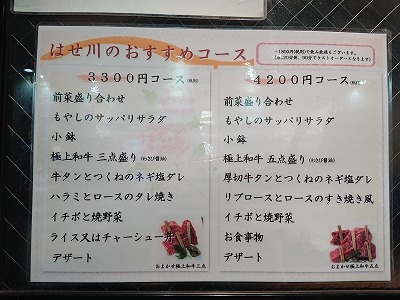 はせ川のおすすめコース
+1800円(税別)で飲み放題もございます。
3300円コース(税別)
前菜盛り合わせ
もやしのサッパリサラダ
小鉢
極上和牛 三点盛り(わさび醤油)
牛タンとつくねのネギ塩ダレ
ハラミとロースのタレ焼き
イチボと焼野菜
ライス又はチャーシュー丼
デザート
おまかせ極上和牛三点
4200円コース(税別)
前菜盛り合わせ
もやしのサッパリサラダ
小鉢
極上和牛 五点盛り(わさび醤油)
厚切牛タンとつくねのネギ塩ダレ
リブロースとロースのすき焼き風
イチボと焼野菜
お食事物
デザート
おまかせ極上和牛五点